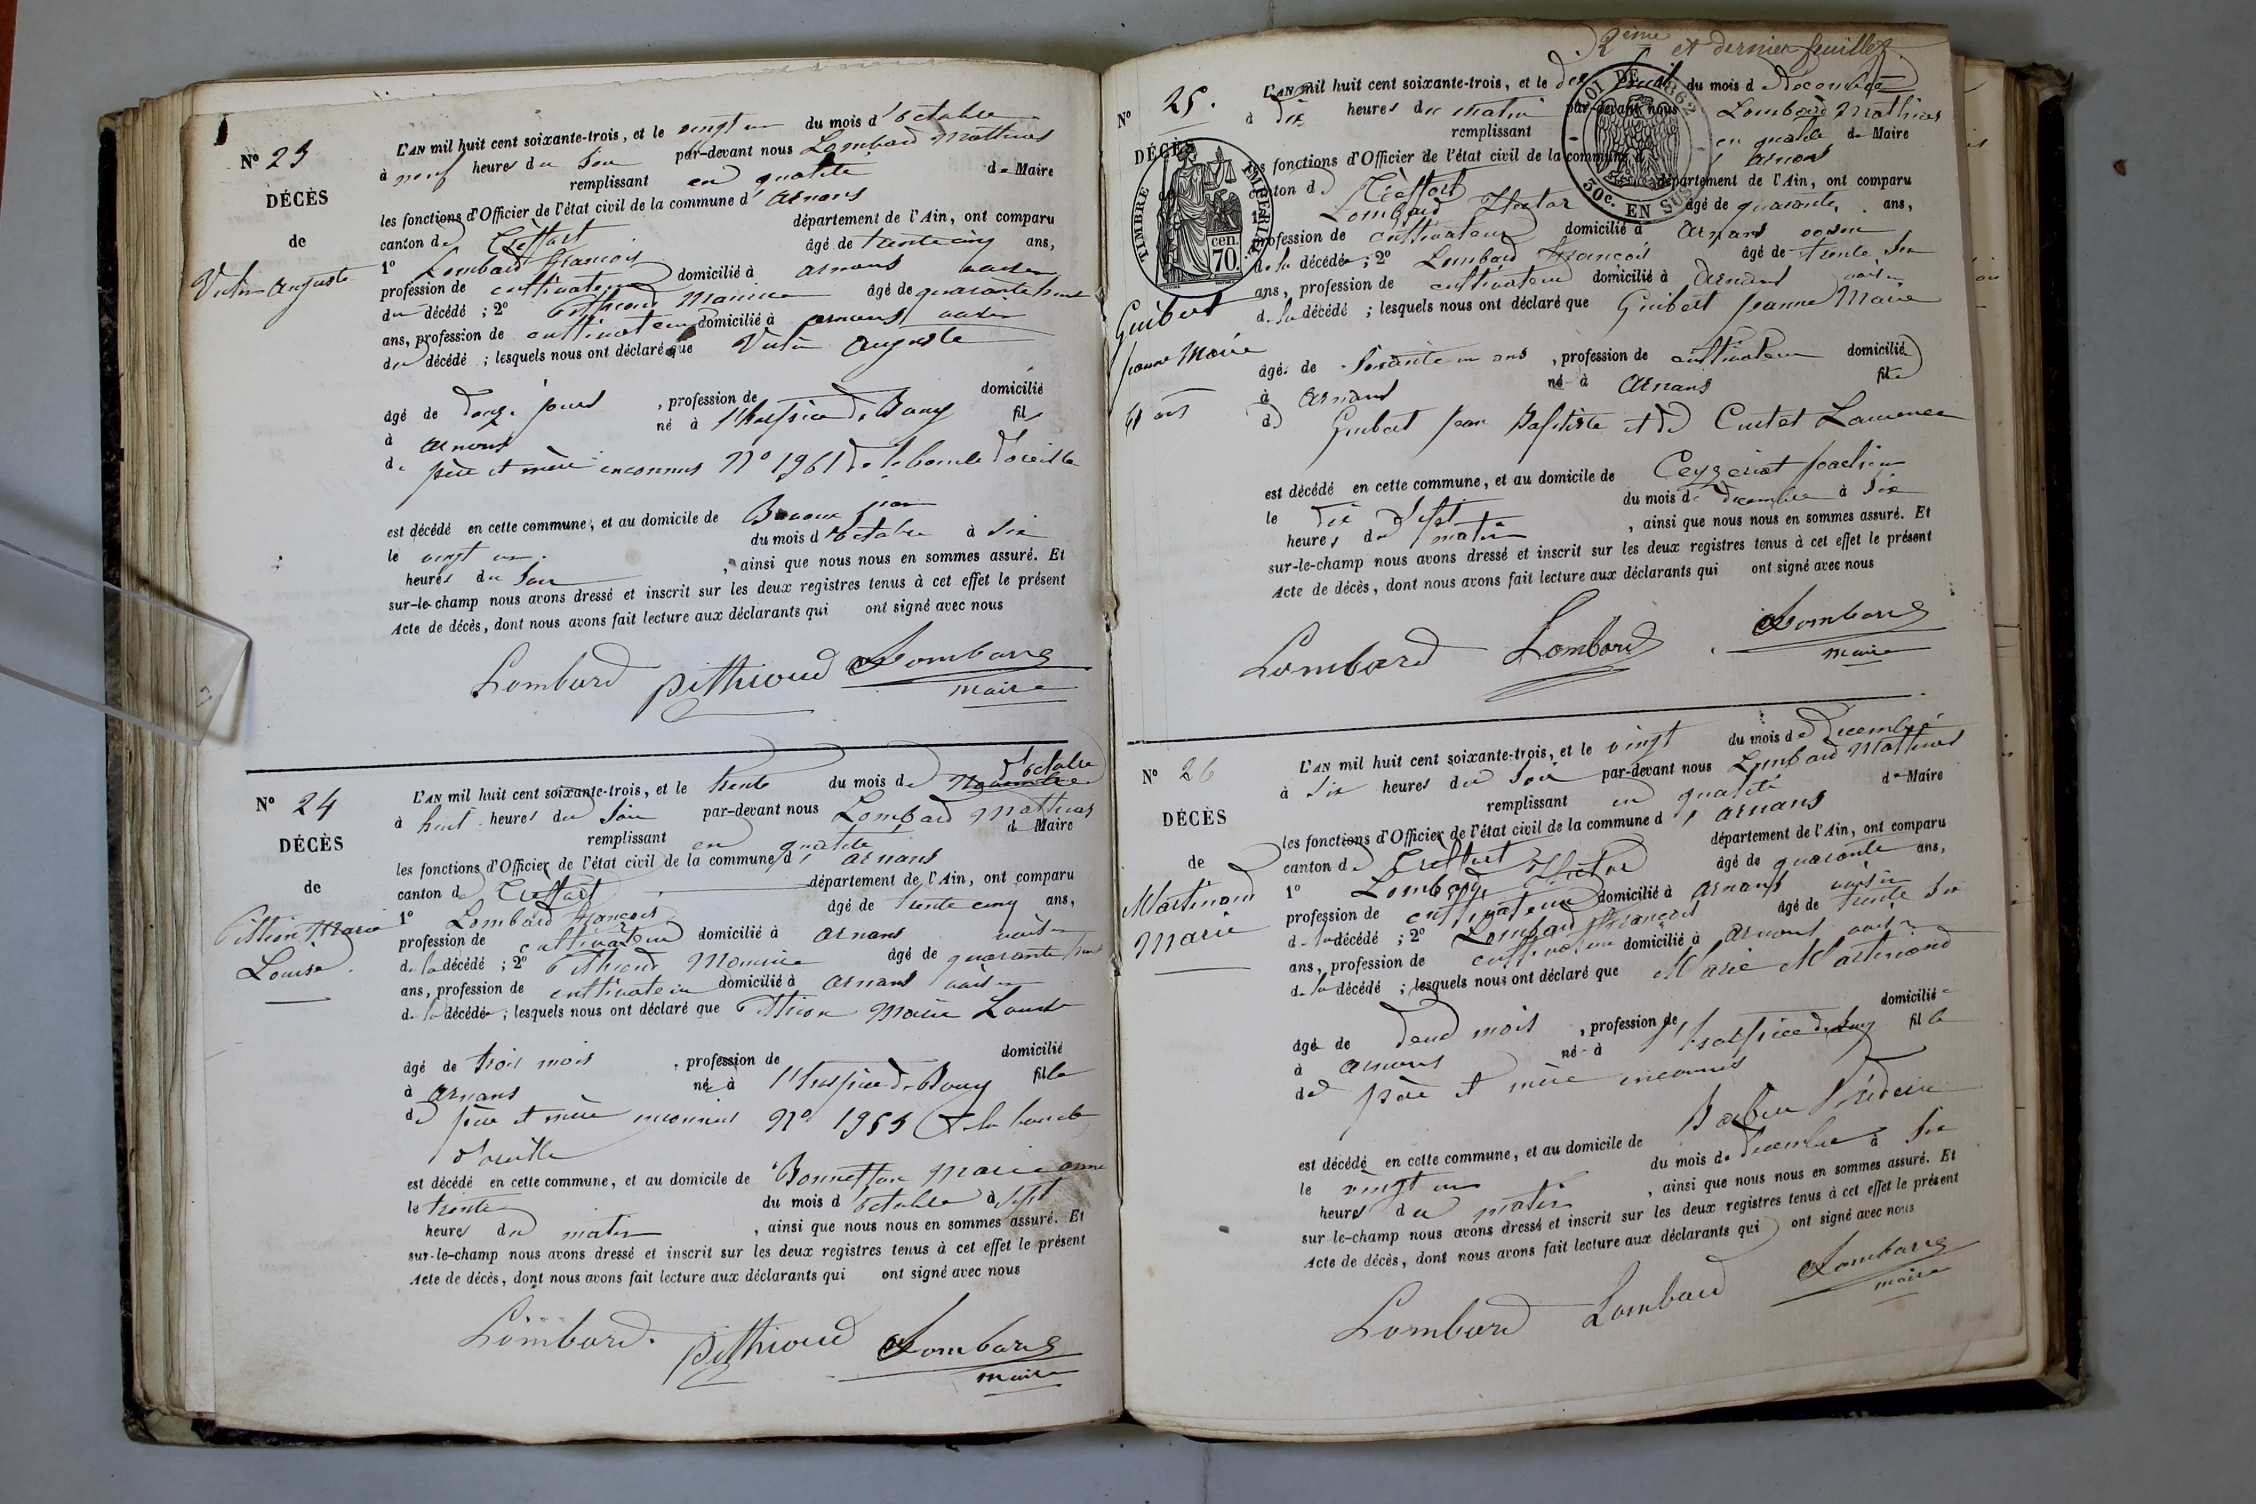 N° 23
DÉCÈS
de
Victor Auguste
L'AN mil huit cent soixante-trois, et le vingt un du mois d'octobre
à neuf heures du soir par-devant nous Lombard Mathieu
remplissant en qualité de Maire
les fonctions d'Officier de l'état civil de la commune d' arnans
canton de Treffort département de l'Ain, ont comparu
1° Lombard françois âgé de trente cinq ans,
profession de cultivateur domicilié à arnans voisin
du décédé ; 2° Pithioud Maurice âgé de quarante huit
ans, profession de cultivateur domicilié à arnans voisin
du décédé ; lesquels nous ont déclaré que Victor Auguste
âgé de douze jours , profession de domicilié
à arnans né à l'hospice de Bourg fils
de père et mère inconnus N° 1961 de la boucle d'oreille
est décédé en cette commune, et au domicile de
le vingt un du mois d'octobre à six
heures du soir , ainsi que nous nous en sommes assuré. Et
sur-le-champ nous avons dressé et inscrit sur les deux registres tenus à cet effet le présent
Acte de décès, dont nous avons fait lecture aux déclarants qui ont signé avec nous
Lombard pithioud Lombard
maire
N° 24
DÉCÈS
de
Pithion Marie
Louise
L'AN mil huit cent soixante-trois, et le trente du mois d'octobre
à huit heures du soir par-devant nous Lombard Mathieu
remplissant en qualité de Maire
les fonctions d'Officier de l'état civil de la commune d' arnans
canton de Treffort département de l'Ain, ont comparu
1° Lombard françois âgé de trente cinq ans,
profession de cultivateur domicilié à arnans voisin
de la décédé ; 2° Pithioud Maurice âgé de quarante huit
ans, profession de cultivateur domicilié à arnans voisin
de la décédée ; lesquels nous ont déclaré que Pithion Marie Louise
âgé de trois mois , profession de domicilié
à arnans né à l'hospice de Bourg fille
de père et mère inconnus N° 1953 de la boucle
d'oreille
est décédé en cette commune, et au domicile de Marie anne
le trente du mois d'octobre à sept
heures du matin , ainsi que nous nous en sommes assuré. Et
sur-le-champ nous avons dressé et inscrit sur les deux registres tenus à cet effet le présent
Acte de décès, dont nous avons fait lecture aux déclarants qui ont signé avec nous
Lombard. pithioud Lombard
maire
2ème et dernier feuillet
N° 25.
DÉCÈS
de
TIMBRE IMPERIAL
70 cen.
LOI DE 1862
50c. EN SUS
Guibert
jeanne Marie
61 ans
L'AN mil huit cent soixante-trois, et le dix huit du mois de Décembre
à dix heures du matin par-devant nous Lombard Mathieu
remplissant en qualité de Maire
les fonctions d'Officier de l'état civil de la commune d' arnans
canton de Treffort département de l'Ain, ont comparu
1° Lombard Victor âgé de quarante ans,
profession de cultivateur domicilié à Arnans voisin
de la décédée ; 2° Lombard françois âgé de trente six
ans, profession de cultivateur domicilié à Arnans voisin
de la décédé ; lesquels nous ont déclaré que Guibert jeanne Marie
âgée de soixante un ans , profession de cultivateur domicilié
à Arnans né à Arnans fille
de Guibert jean Baptiste et de Curtet Laurence
est décédé en cette commune, et au domicile de Ceyzeriat joachim
le dix sept du mois de decembre à six
heures du matin , ainsi que nous nous en sommes assuré. Et
sur-le-champ nous avons dressé et inscrit sur les deux registres tenus à cet effet le présent
Acte de décès, dont nous avons fait lecture aux déclarants qui ont signé avec nous
Lombard Lombard Lombard
maire
N° 26
DÉCÈS
de
Martinand
Marie
L'AN mil huit cent soixante-trois, et le vingt du mois de Decembre
à six heures du soir par-devant nous Lombard Mathieu
remplissant en qualité de Maire
les fonctions d'Officier de l'état civil de la commune d' arnans
canton de Treffort département de l'Ain, ont comparu
1° Lombard Victor âgé de quarante ans,
profession de cultivateur domicilié à arnans voisin
de la décédé ; 2° Lombard françois âgé de trente six
ans, profession de cultivateur domicilié à arnans voisin
de la décédé ; lesquels nous ont déclaré que Marie Martinand
âgé de deux mois , profession de domiciliée
à arnans né à l'hospice de Bourg fille
de père et mère inconnus
est décédé en cette commune, et au domicile de
le vingt un du mois de Decembre à six
heures du matin , ainsi que nous nous en sommes assuré. Et
sur le-champ nous avons dressé et inscrit sur les deux registres tenus à cet effet le présent
Acte de décès, dont nous avons fait lecture aux déclarants qui ont signé avec nous
Lombard Lombard Lombard
maire